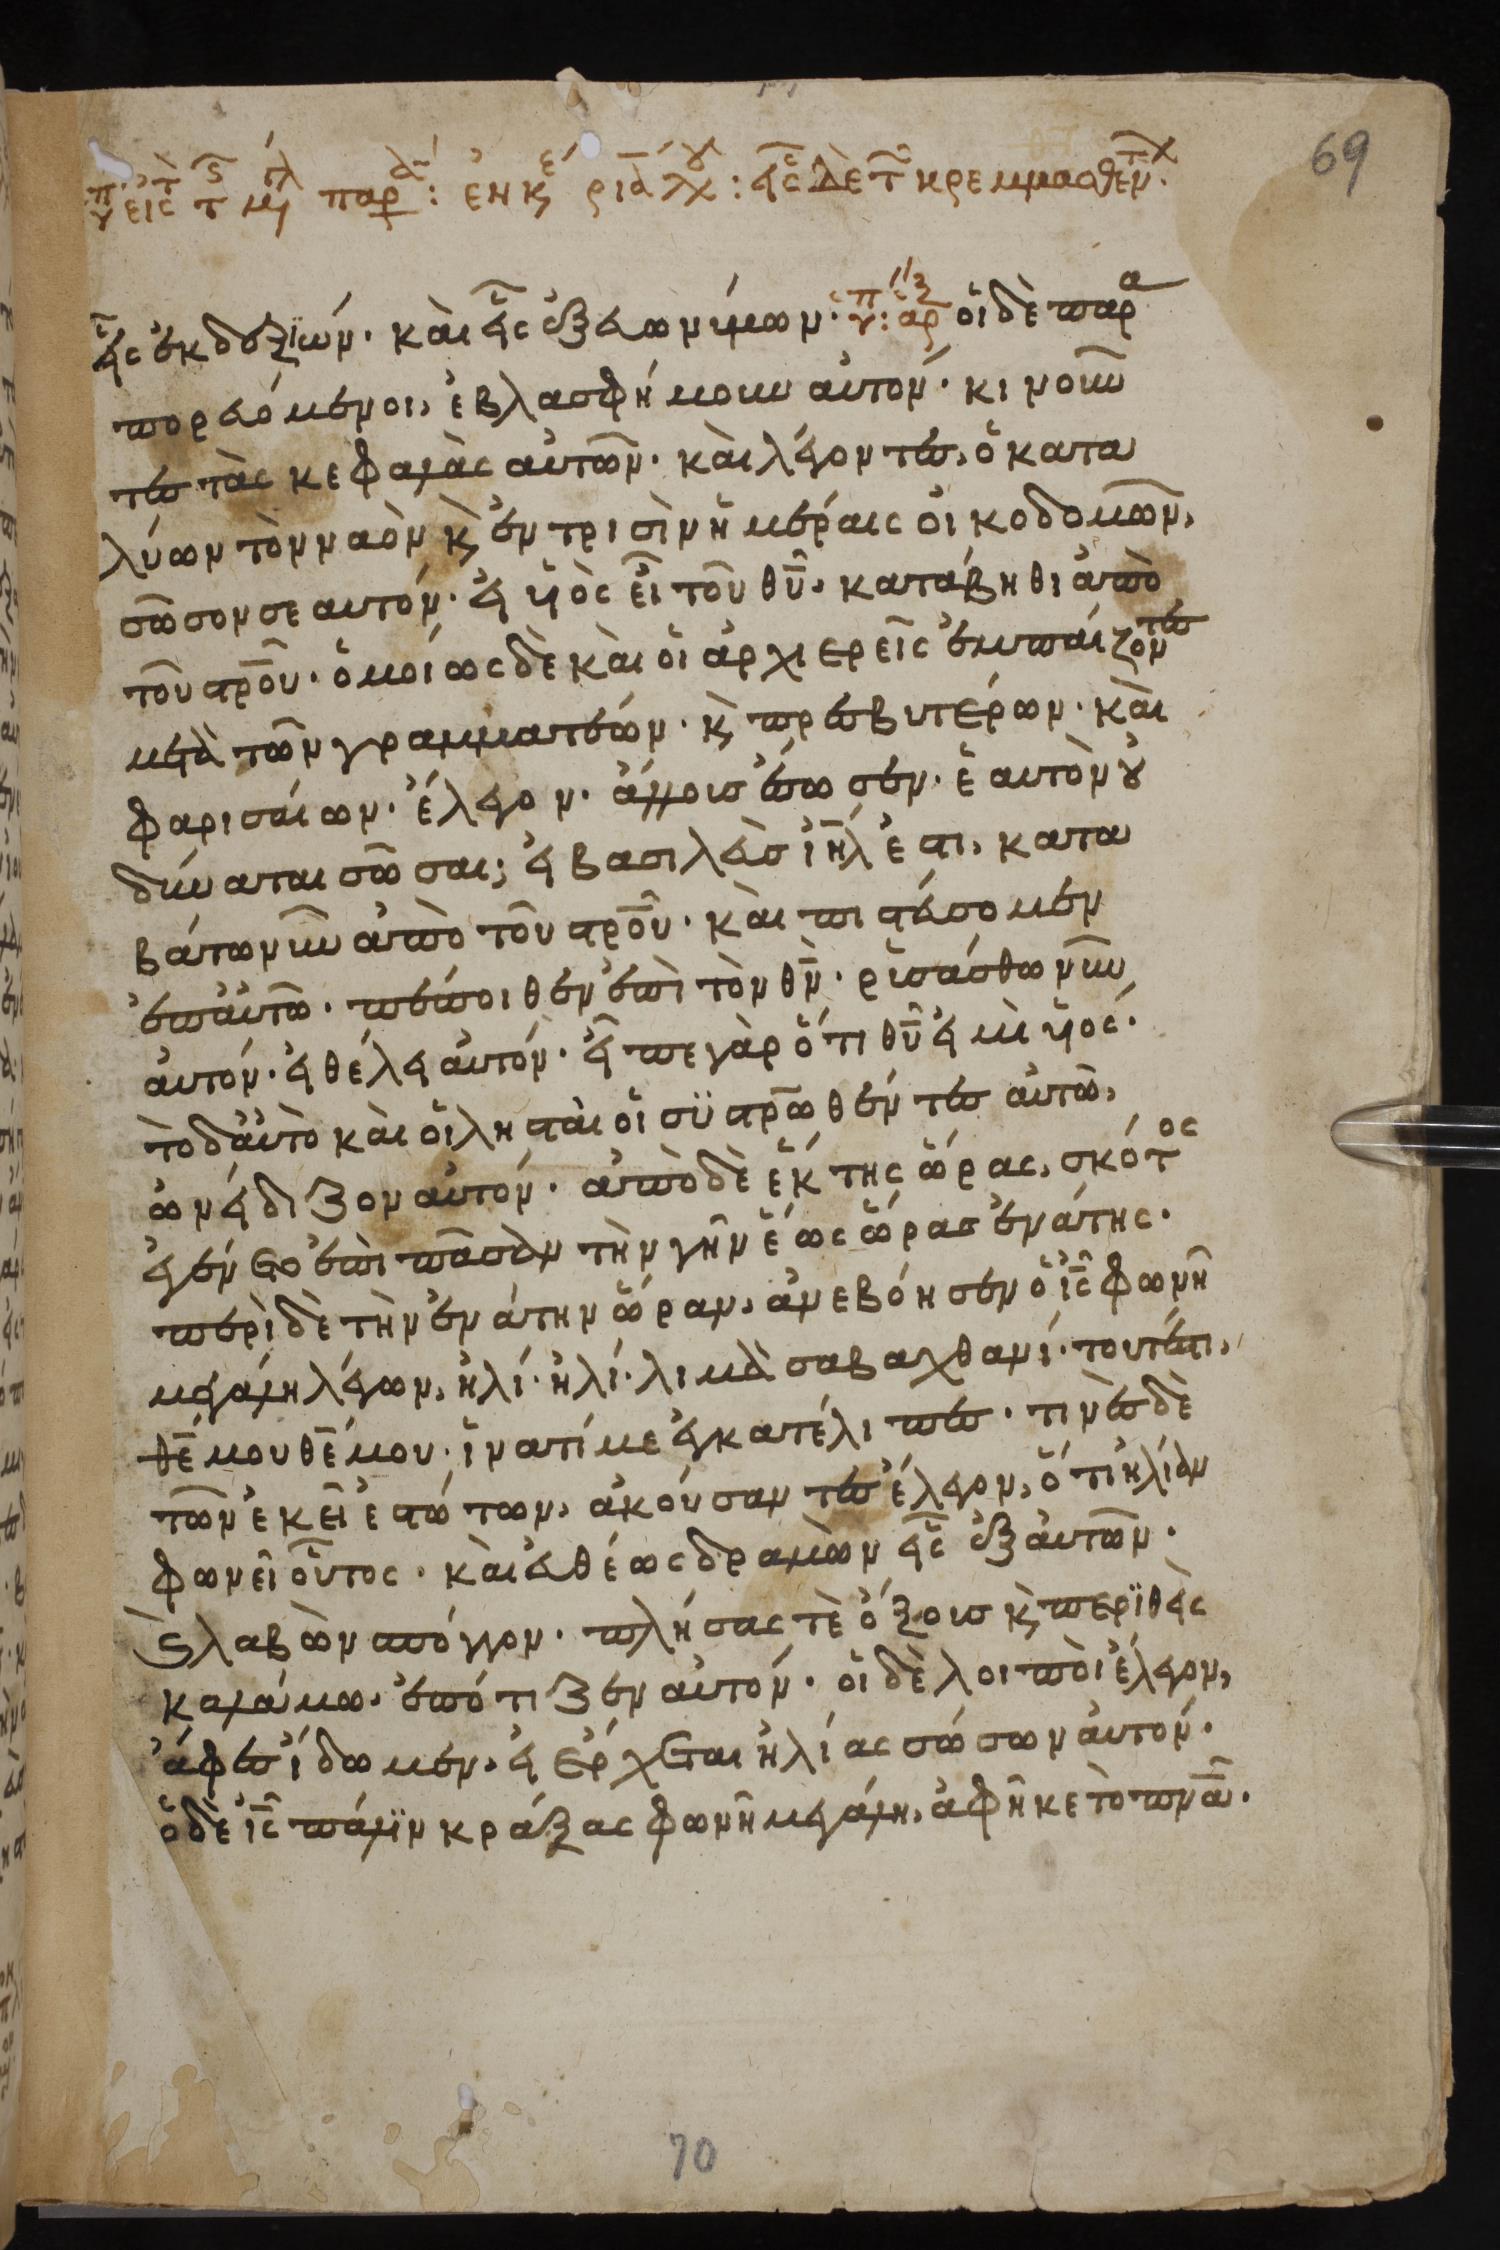 69
εἷς ἐκ δεξιών. καὶ εἷς ἐξ εὐωνύμων. οἱ δὲ παρα
πορευόμενοι, ἐβλασφήμουν αὐτόν. κινοῦν
τες τὰς κεφαλὰς αὐτῶν. καὶ λέγοντες, ὁ κατα
λύων τὸν ναὸν κ̀ ἐν τρισὶν ἡμέραις οἰκοδομῶν,
σῶσον σεαυτόν. εἰ υἱὸς εἶ τοῦ θυ̅. κατάβηθι ἀπὸ
τοῦ στρο̅υ. ὁμοίως δὲ καὶ οἱ ἀρχιερεῖς ἐμπαίζοντες
μετὰ τῶν γραμματέων. κ̀ πρεσβυτέρων. καὶ
φαρισαίων. ἔλεγον. ἄλλους ἔσωσεν. ἑαυτὸν οὐ
δύναται σῶσαι; εἰ βασιλεὺς ἰη̅λ ἐστι, κατα
βάτω νῦν ἀπὸ τοῦ στρο̅υ. καὶ πιστεύσομεν
ἐπ' αὐτῶ. πέποιθεν ἐπὶ τὸν θν̅. ῥυσάσθω νῦν
αὐτόν. εἰ θέλει αὐτόν. εἶπε γὰρ ὅτι θυ̅ εἰμὶ υἱός.
τὸ δ' αὐτὸ καὶ οἱ λησταὶ οἱ συστρω̅θέντες αὐτῶ,
ὠνείδιζον αὐτόν. ἀπὸ δὲ ἕκτης ὥρας, σκότος
ἐγένετο ἐπὶ πᾶσαν τὴν γῆν ἕως ὥρας ἐνάτης.
περὶ δὲ τὴν ἐνάτην ὥραν, ἀνεβόησεν ὁ ις̅ φωνῆ
μεγάλη λέγων, ἠλί. ἠλί. λιμὰ σαβαχθανί. τουτέστι,
θε̅ μου θε̅ μου. ἱνατί με ἐγκατέλιπες. τινὲς δὲ
τῶν ἐκεῖ ἑστώτων, ἀκούσαντες ἔλεγον, ὅτι ἠλίαν
φωνεῖ οὗτος. καὶ εὐθέως δραμὼν εἷς ἐξ αὐτῶν.
κ̀ λαβὼν σπόγγον. πλήσας τὲ ὄξους κ̀ περϊθεὶς
καλάμω, ἐπότιζεν αὐτόν. οἱ δὲ λοιποὶ ἔλεγον,
ἄφες ἴδωμεν, εἰ ἔρχεται ἠλίας σώσων αὐτόν.
ὁ δὲ ις̅ πάλϊν κράξας φωνῆ μεγάλη, ἀφῆκε τὸ πνα̅.
70